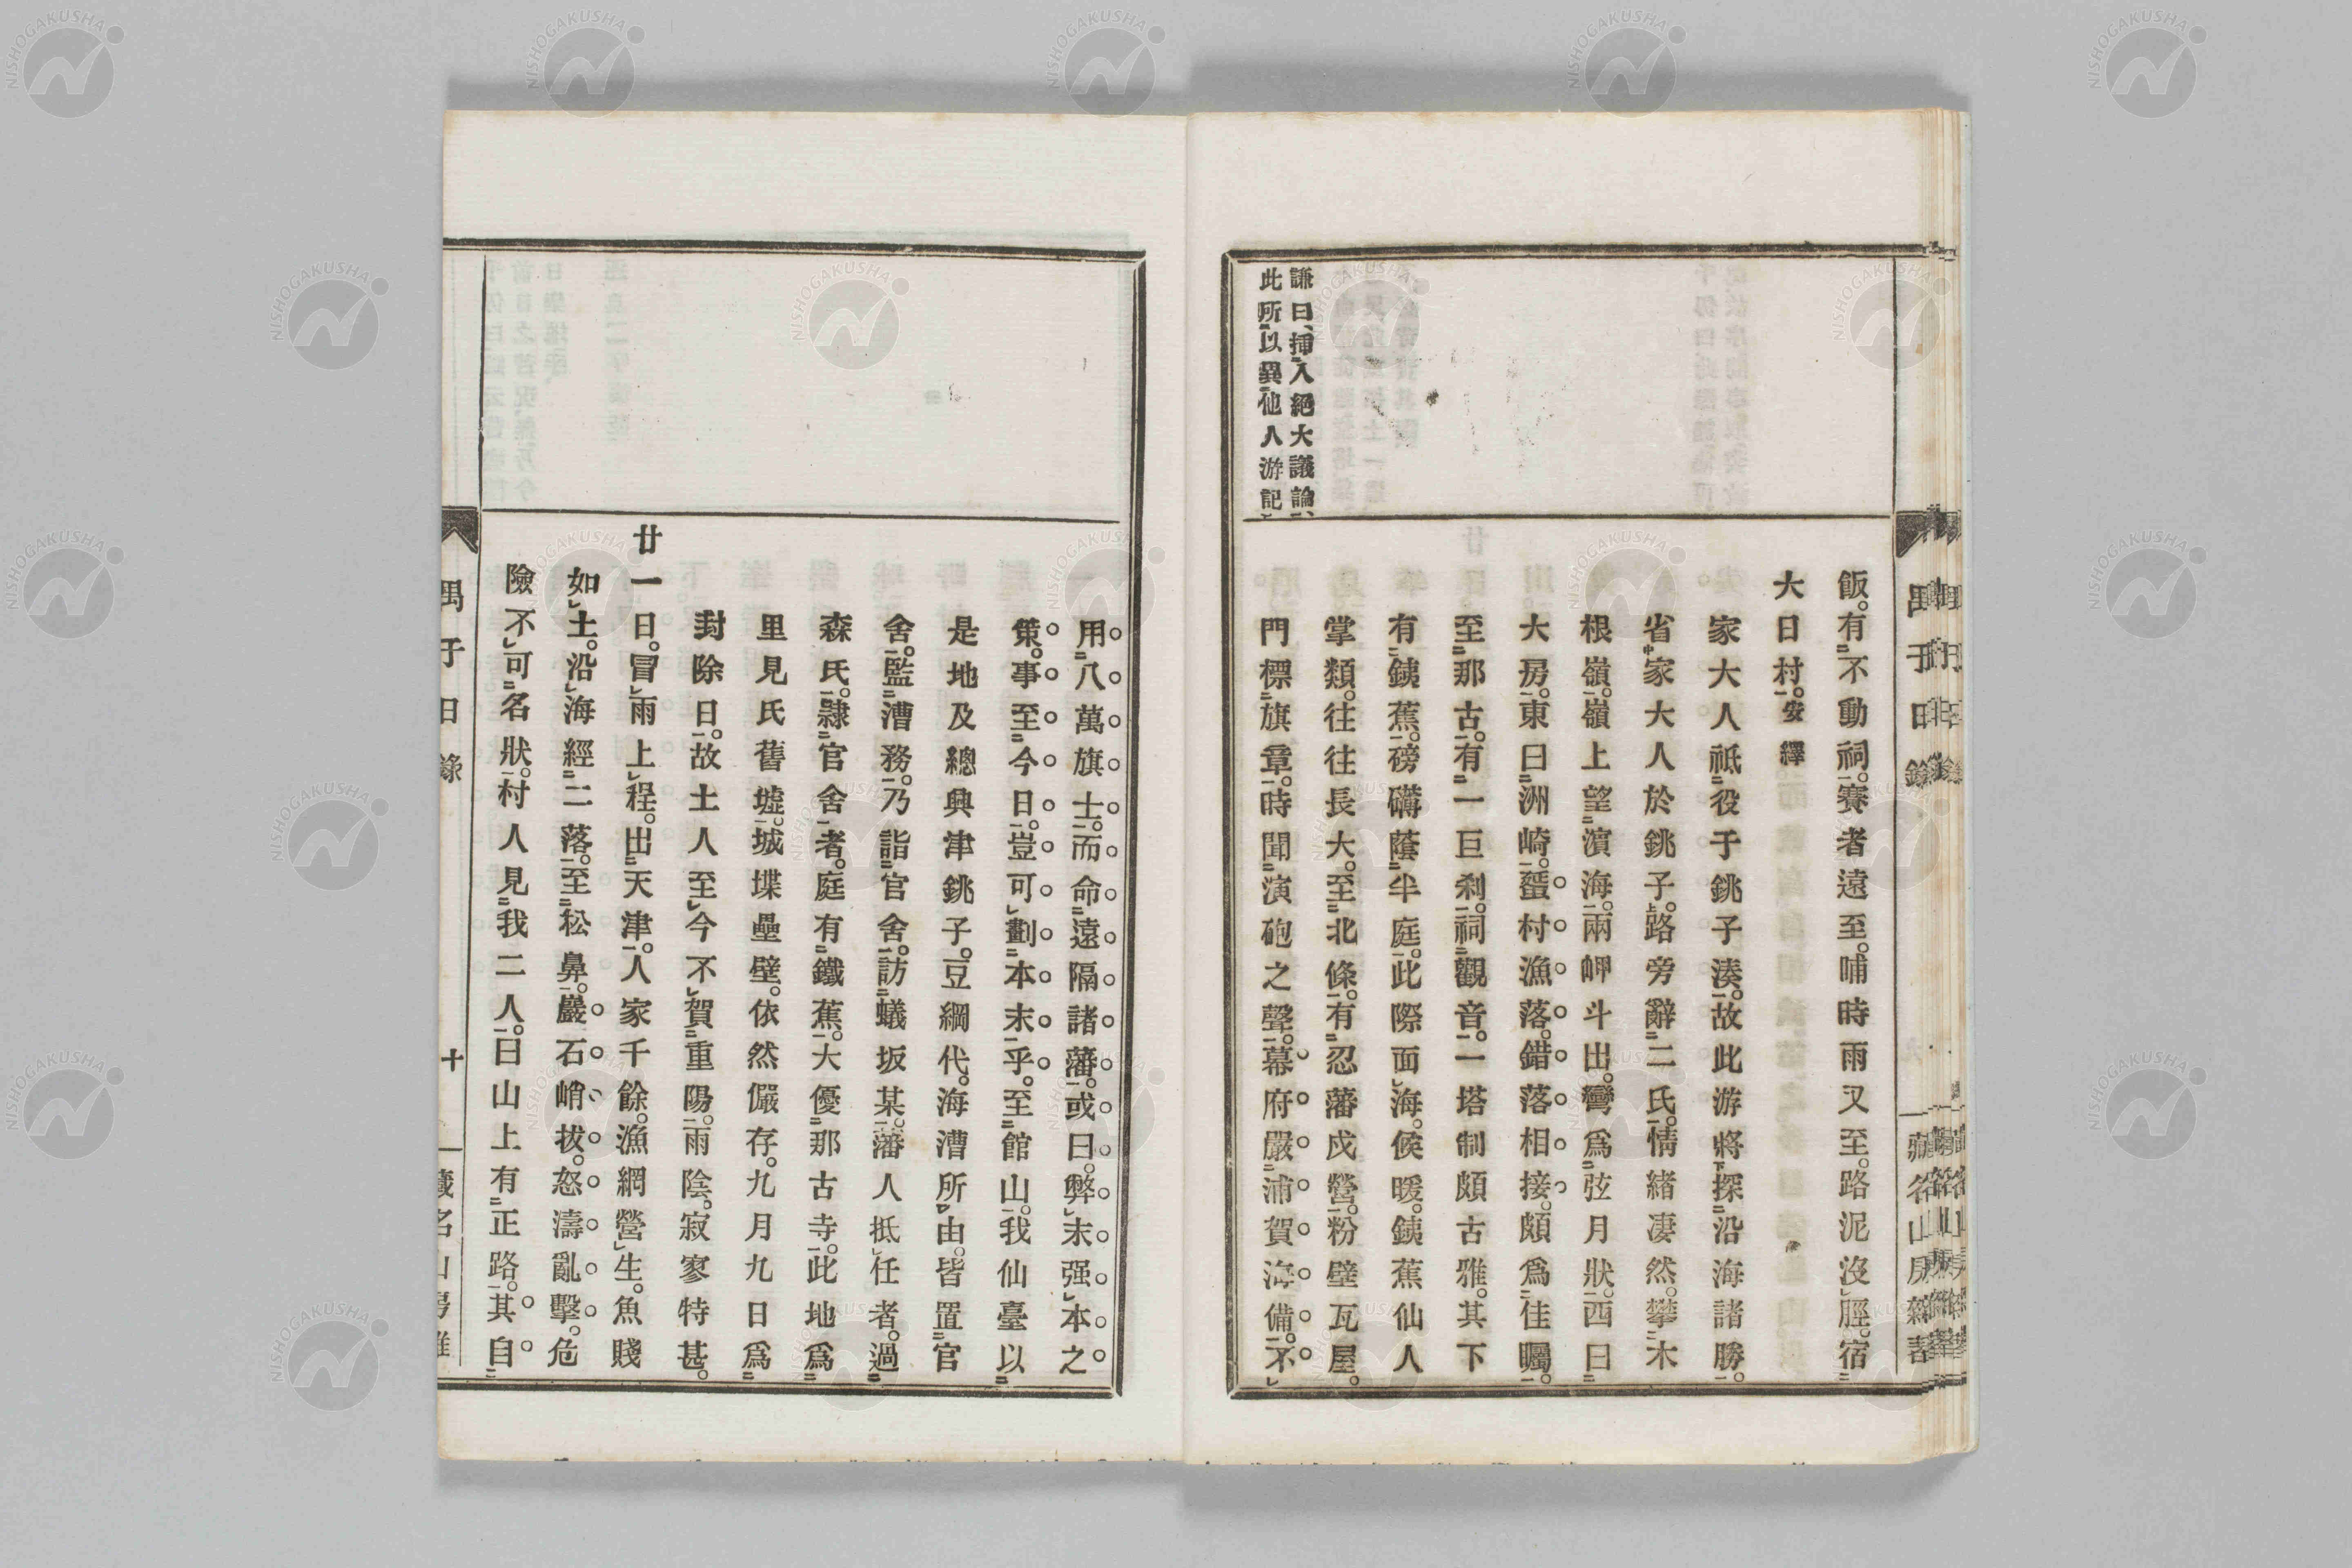 謙曰、挿入絕大議論、
此所以異他人游記
飯。有不動祠。賽者遠至。哺時雨又至。路泥沒脛。宿
大日村。安繹
家大人祗役于銚子湊。故此游將探沿海諸勝。
省家大人於銚子。路旁辭二氏。情緒凄然。攀木
根嶺。嶺上望濱海。兩岬斗出。彎爲弦月狀。西曰
大房。東曰洲崎。蜑村漁落。錯落相接。頗爲佳矚。
至那古。有一巨刹。祠觀音。一塔制頗古雅。其下
有銕蕉。磅礴蔭半庭。此際面海。候暖。銕蕉仙人
掌類。往往長大。至北條。有忍藩戍營。粉壁瓦屋。
門標旗章。時聞演砲之聲。幕府嚴浦賀海備。不
用八萬旗士。而命遠隔諸藩。或曰。弊末强本之
策。事至今日。豈可劃本末乎。至館山。我仙臺以
是地及總興津銚子。豆綱代。海漕所由。皆置官
舍。監漕務。乃詣官舍。訪蟻坂某。藩人抵任者。過
森氏。隷官舍者。庭有鐵蕉。大優那古寺。此地爲
里見氏舊墟。城堞壘壁。依然儼存。九月九日爲
封除日。故土人至今不賀重陽。雨陰。寂寥特甚。
廿一日。冒雨上程。出天津。人家千餘。漁網營生。魚賤
如土。沿海經二落。至松鼻。巖石峭拔。怒濤亂擊。危
險不可名狀。村人見我二人。曰山上有正路。其自
禺于日錄
十
藏名山房雜